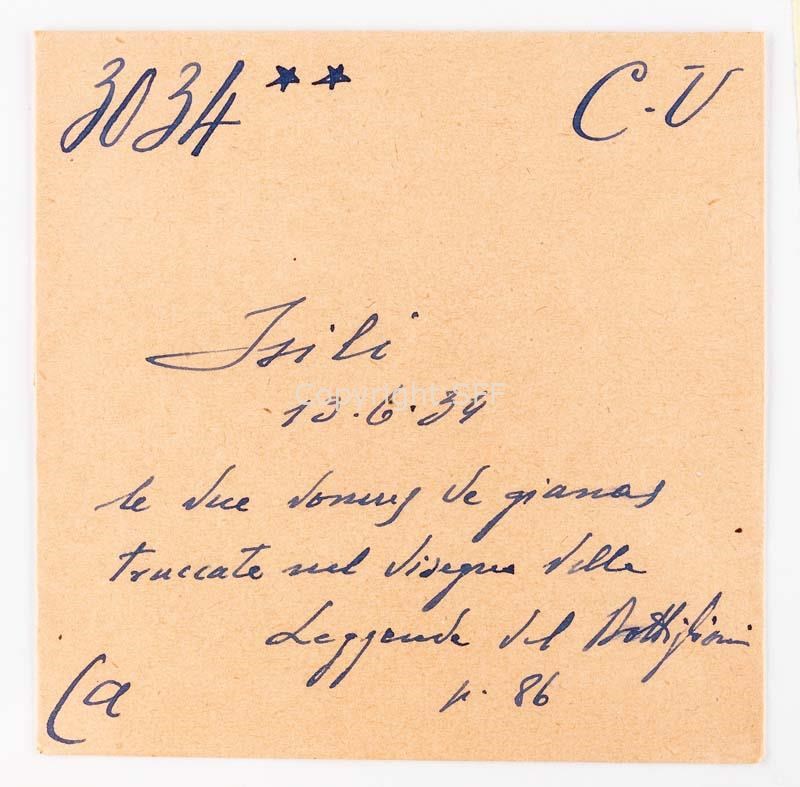 3034 ** C-V
Isili
13.6.34
le due domus de gianas
truccate nel disegno delle
Leggende del Bottiglioni
p. 86
Ca
Copyright ISFF